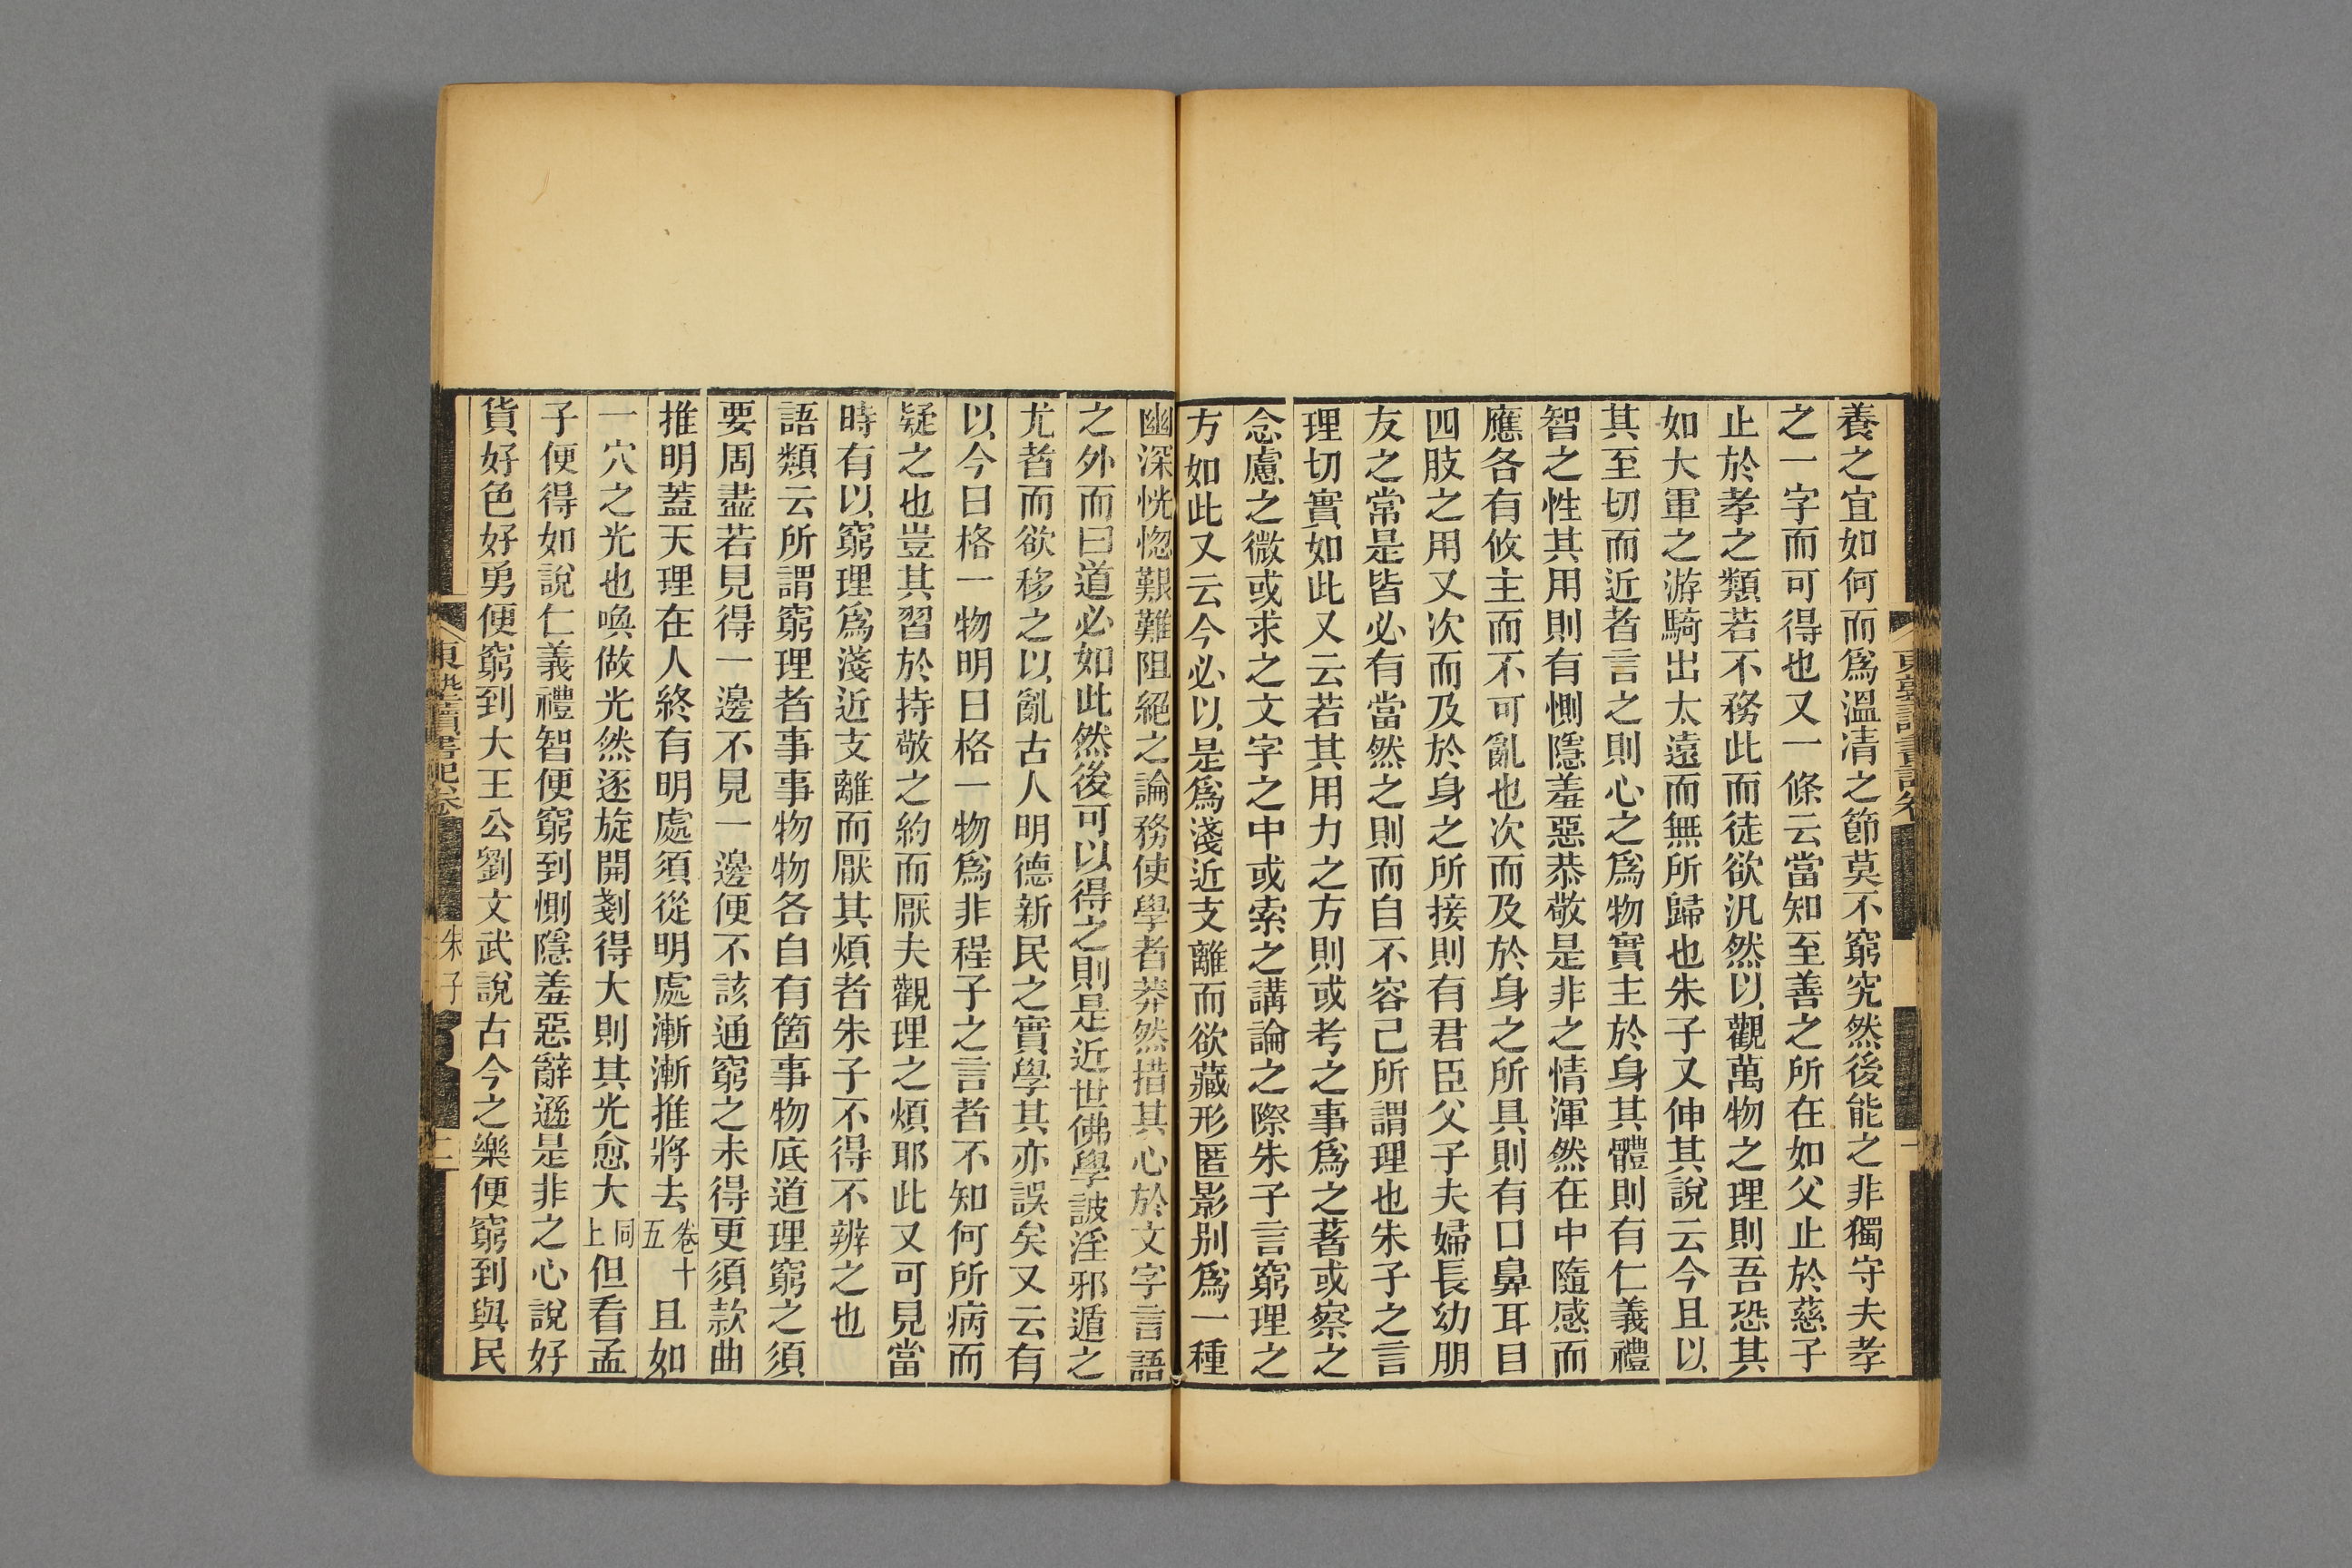 養之宜如何而爲溫凊之節莫不窮究然後能之非獨守夫孝
之一字而可得也又一條云當知至善之所在如父止於慈子
止於孝之類若不務此而徒欲汎然以觀萬物之理則吾恐其
如大軍之游騎出太遠而無所歸也朱子又伸其說云今且以
其至切而近者言之則心之爲物實主於身其體則有仁義禮
智之性其用則有惻隱羞惡恭敬是非之情渾然在中隨感而
應各有攸主而不可亂也次而及於身之所具則有口鼻耳目
四肢之用又次而及於身之所接則有君臣父子夫婦長幼朋
友之常是皆必有當然之則而自不容己所謂理也朱子之言
理切實如此又云若其用力之方則或考之事爲之著或察之
念慮之微或求之文字之中或索之講論之際朱子言窮理之
方如此又云今必以是爲淺近支離而欲藏形匿影别爲一種
幽深恍惚艱難阻絕之論務使學者莽然措其心於文字言語
之外而曰道必如此然後可以得之則是近世佛學詖淫邪遁之
尤者而欲移之以亂古人明德新民之實學其亦誤矣又云有
以今日格一物明日格一物爲非程子之言者不知何所病而
疑之也豈其習於持敬之約而厭夫觀理之煩耶此又可見當
時有以窮理爲淺近支離而厭其煩者朱子不得不辨之也
語類云所謂窮理者事事物物各自有箇事物底道理窮之須
要周盡若見得一邊不見一邊便不該通窮之未得更須款曲
推明蓋天理在人終有明處須從明處漸漸推將去卷十五且如
一穴之光也喚做光然逐旋開剗得大則其光愈大同上但看孟
子便得如說仁義禮智便窮到惻隱羞惡辭遜是非之心說好
貨好色好勇便窮到大王公劉文武說古今之樂便窮到與民
東塾讀書記卷
朱子
二